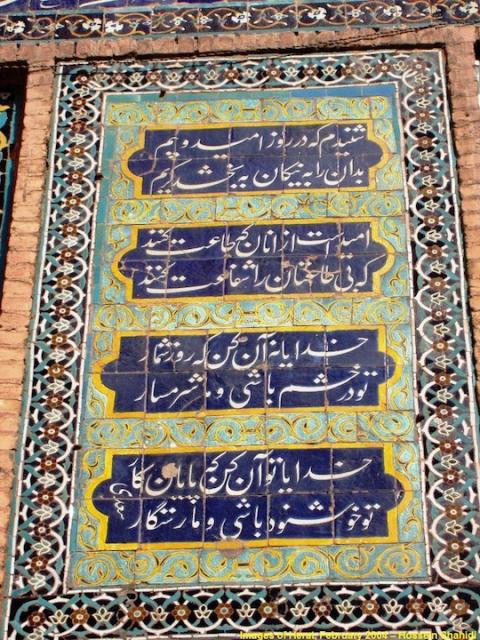 شنیدم که در روز امید و بیم
بدان را به نیکان به بخشد کریم
امیدست از آنان که طاعت کنند
که بی طاعتان را شفاعت کنند
خدایا نه آن کن که روز شمار
تو در خشم باشی و ما شرمسار
خدایا تو آن کن که پایان کار
تو خوشنود باشی و ما رستگار
Images of Herat, February 2004 – Hossein Shahidi